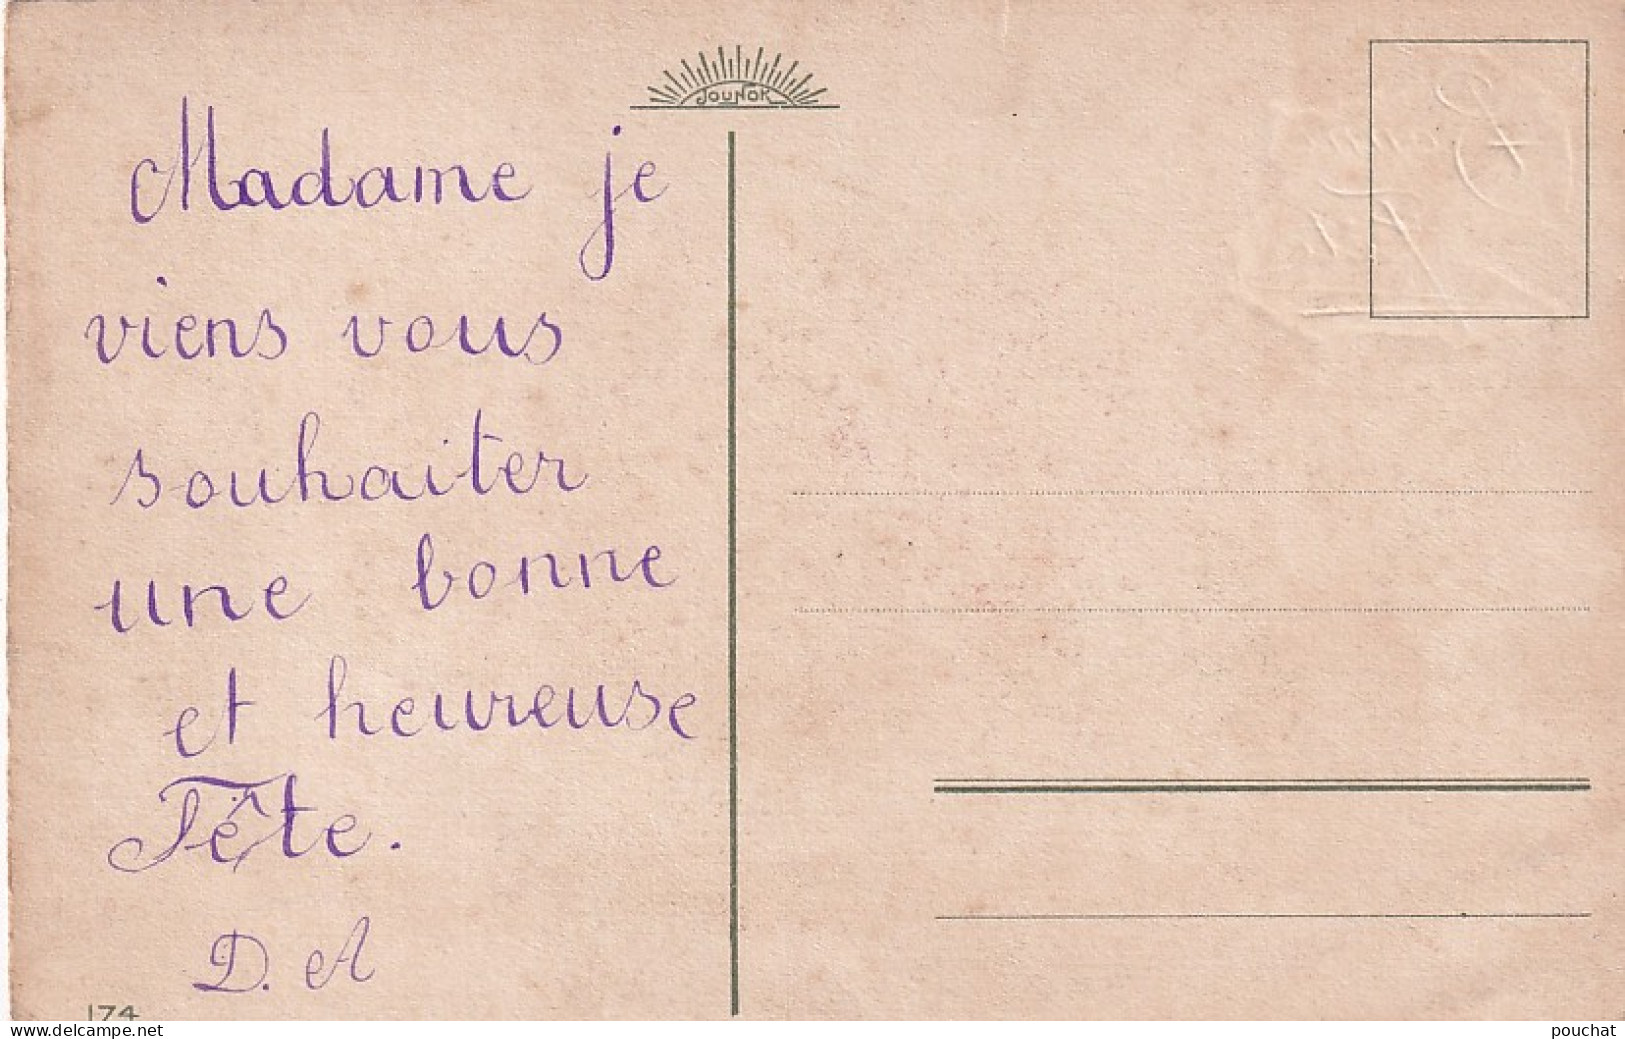 JOUNOK
Madame je
viens vous
souhaiter
une bonne
et heureuse
Fête.
D. A
174
Bonne
Fête
www.delcampe.net
pouchat